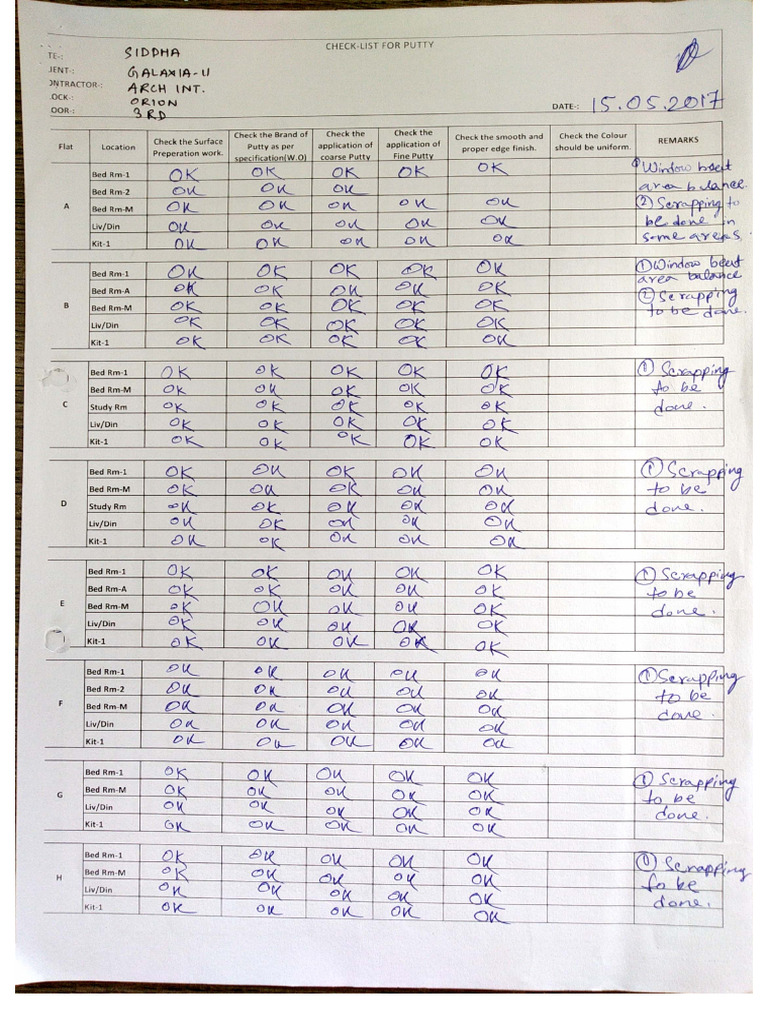 CHECK-LIST FOR PUTTY
TE-: SIDDHA
IENT-: GALAXIA-II
ONTRACTOR-: ARCH INT.
OCK-: ORION
OOR-: 3RD
DATE-: 15.05.2017
Flat Location Check the Surface Preperation work. Check the Brand of Putty as per specification(W.O) Check the application of coarse Putty Check the application of Fine Putty Check the smooth and proper edge finish. Check the Colour should be uniform. REMARKS
A
Bed Rm-1 OK OK OK OK OK ① Window
Bed Rm-2 OK OK OK area balance.
Bed Rm-M OK OK OK OK OK ② Scrapping to
Liv/Din OK OK OK OK OK be done in
Kit-1 OK OK OK OK OK some areas.
B
Bed Rm-1 OK OK OK OK OK ① Window
Bed Rm-A OK OK OK OK OK area balance
Bed Rm-M OK OK OK OK OK ② Scrapping
Liv/Din OK OK OK OK OK to be done.
Kit-1 OK OK OK OK OK
C
Bed Rm-1 OK OK OK OK OK ① Scrapping
Bed Rm-M OK OK OK OK OK to be
Study Rm OK OK OK OK OK done.
Liv/Din OK OK OK OK OK
Kit-1 OK OK OK OK OK
D
Bed Rm-1 OK OK OK OK OK ① Scrapping
Bed Rm-M OK OK OK OK OK to be
Study Rm OK OK OK OK OK done.
Liv/Din OK OK OK OK OK
Kit-1 OK OK OK OK OK
E
Bed Rm-1 OK OK OK OK OK ① Scrapping
Bed Rm-A OK OK OK OK OK to be
Bed Rm-M OK OK OK OK OK done.
Liv/Din OK OK OK OK OK
Kit-1 OK OK OK OK OK
F
Bed Rm-1 OK OK OK OK OK ① Scrapping
Bed Rm-2 OK OK OK OK OK to be
Bed Rm-M OK OK OK OK OK done.
Liv/Din OK OK OK OK OK
Kit-1 OK OK OK OK OK
G
Bed Rm-1 OK OK OK OK OK ① Scrapping
Bed Rm-M OK OK OK OK OK to be
Liv/Din OK OK OK OK OK done.
Kit-1 OK OK OK OK OK
H
Bed Rm-1 OK OK OK OK OK ① Scrapping
Bed Rm-M OK OK OK OK OK to be
Liv/Din OK OK OK OK OK done.
Kit-1 OK OK OK OK OK